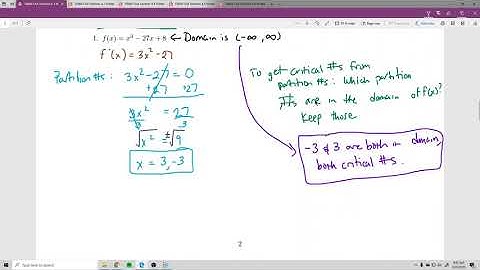 1. f(x) = x³ - 27x + 8 ← Domain is (-∞, ∞)
f'(x) = 3x² - 27
Partition #s: 3x² - 27 = 0
+27 +27
3x² = 27
3 3
√x² = ±√9
x = 3, -3
To get critical #s from
partition #s: which partition
#s are in the domain of f(x)?
Keep those.
-3 & 3 are both in domain,
both critical #s.
2